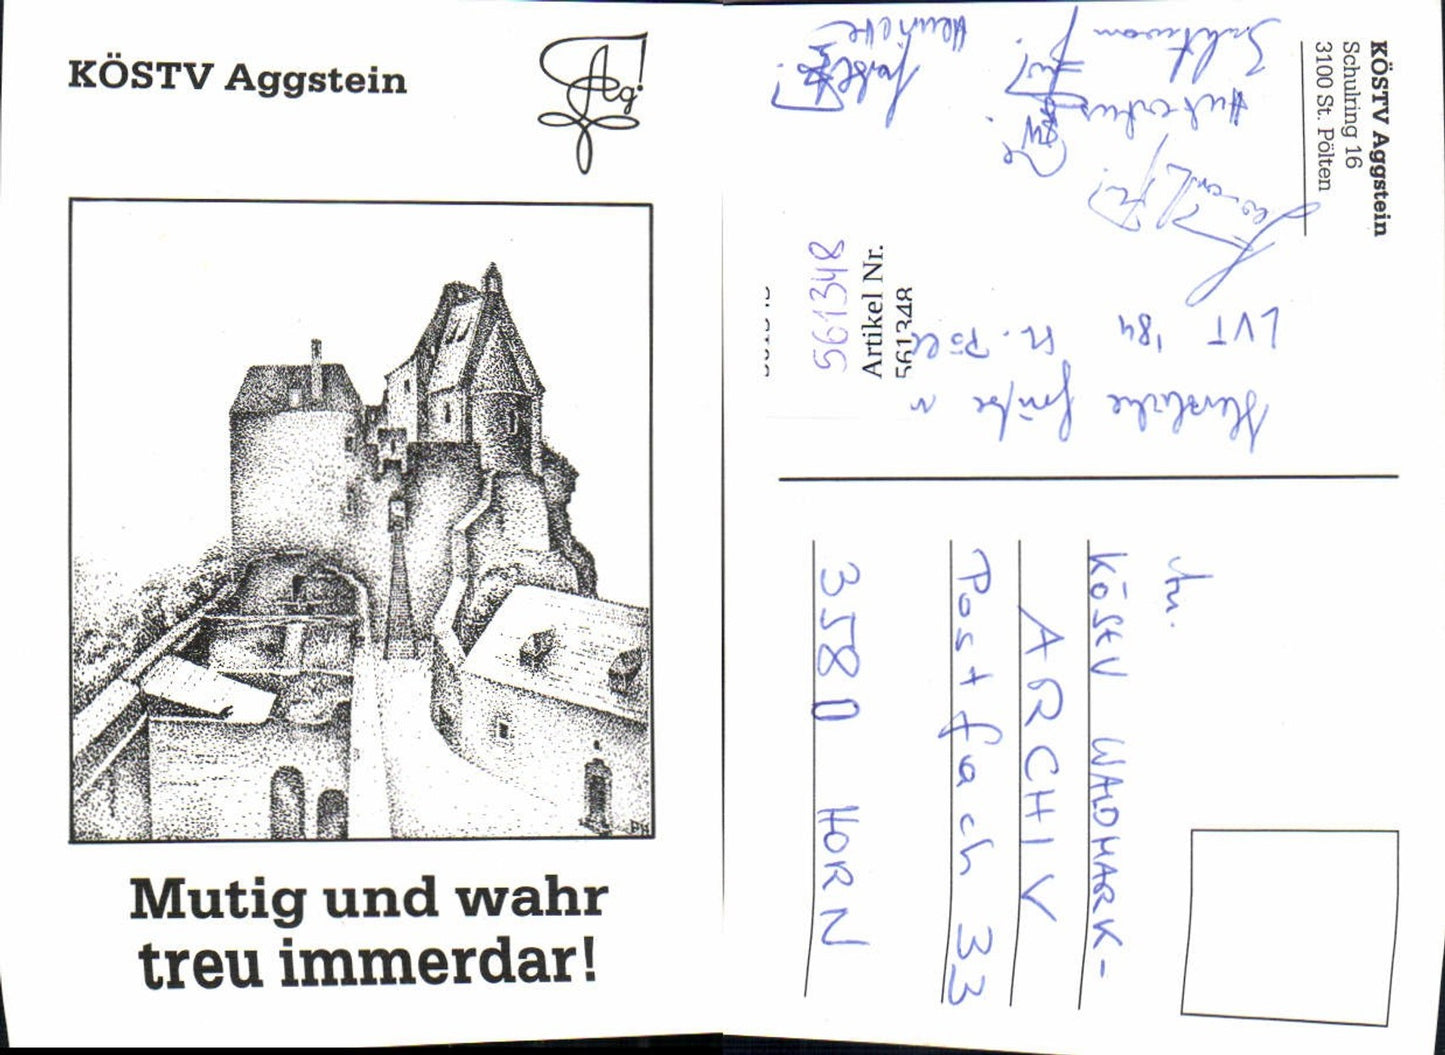 KÖSTV Aggstein
Ag!
PH
Mutig und wahr
treu immerdar!
KÖSTV Aggstein
Schulring 16
3100 St. Pölten
Herzliche Grüße v
LVT '84 St. Pölt
561348
Artikel Nr.
561348
An
KÖStV WALDMARK-
ARCHIV
Postfach 33
3580 HORN